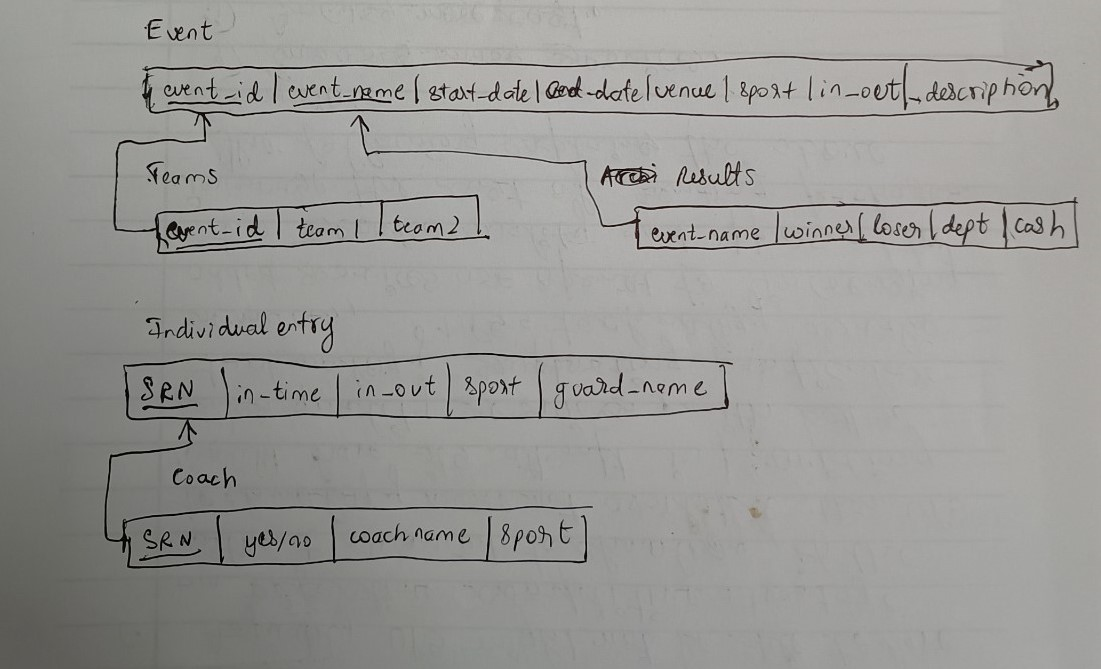 Event
event_id | event_name | start_date | end_date | venue | sport | in_out | description
Teams
event_id | team 1 | team 2
Results
event_name | winner | loser | dept | cash
Individual entry
SRN | in-time | in_out | sport | guard_name
Coach
SRN | yes/no | coach name | sport